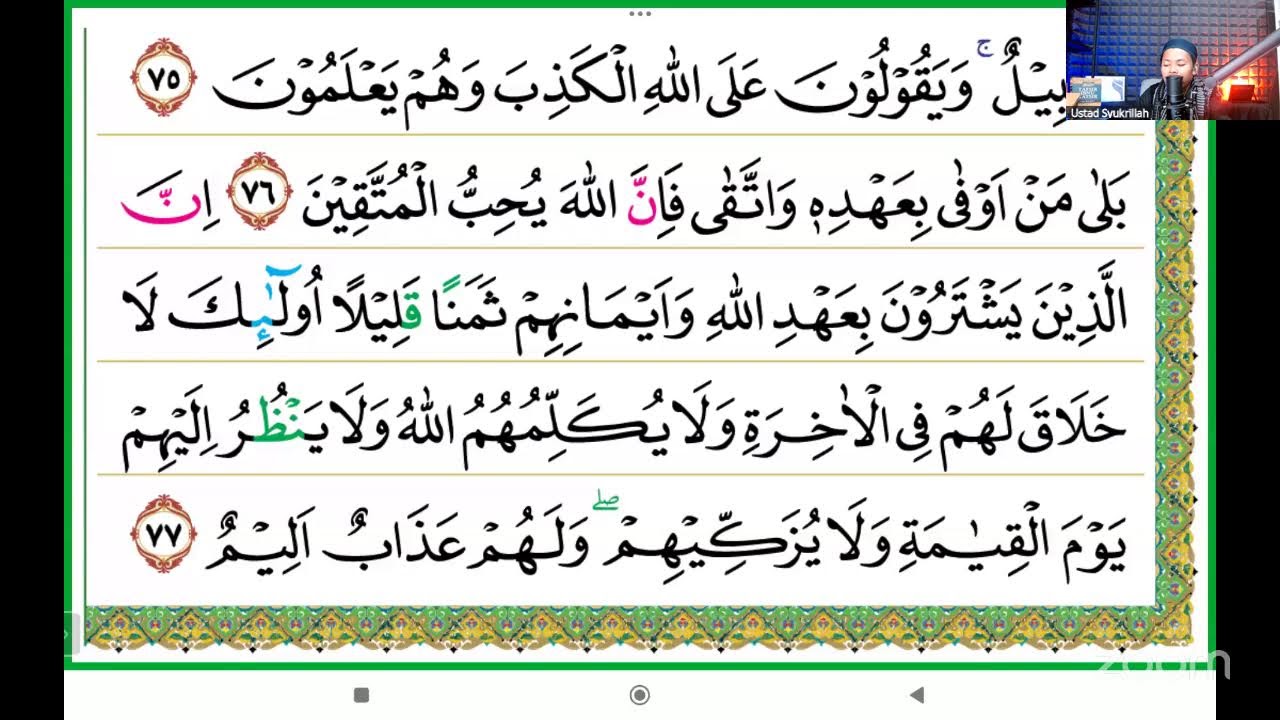 بِيْلٌ ۚ وَيَقُوْلُوْنَ عَلَى اللّٰهِ الْكَذِبَ وَهُمْ يَعْلَمُوْنَ ٧٥
بَلٰى مَنْ اَوْفٰى بِعَهْدِهٖ وَاتَّقٰى فَاِنَّ اللّٰهَ يُحِبُّ الْمُتَّقِيْنَ ٧٦ اِنَّ
الَّذِيْنَ يَشْتَرُوْنَ بِعَهْدِ اللّٰهِ وَاَيْمَانِهِمْ ثَمَنًا قَلِيْلًا اُولٰۤىِٕكَ لَا
خَلَاقَ لَهُمْ فِى الْاٰخِرَةِ وَلَا يُكَلِّمُهُمُ اللّٰهُ وَلَا يَنْظُرُ اِلَيْهِمْ
يَوْمَ الْقِيٰمَةِ وَلَا يُزَكِّيْهِمْ ۖ وَلَهُمْ عَذَابٌ اَلِيْمٌ ٧٧
Ustad Syukrillah
zoom